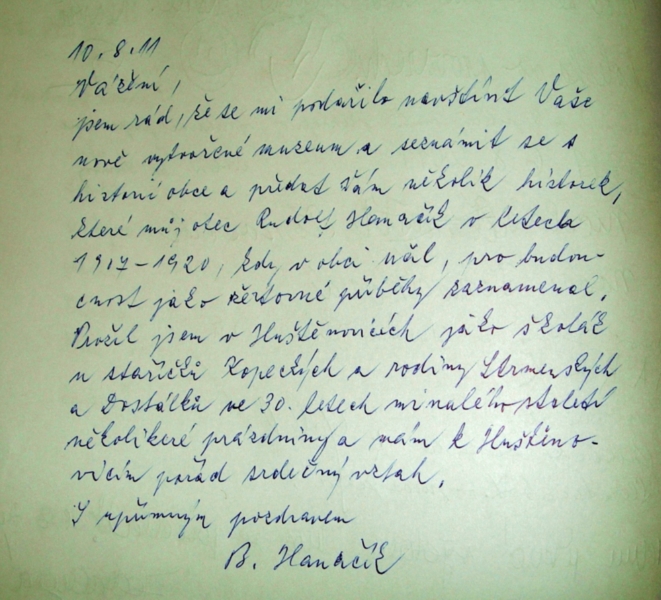 10.8.11
Vážení,
jsem rád, že se mi podařilo navštívit Vaše
nově vytvořené muzeum a seznámit se s
historií obce a předat Vám několik historek,
které můj otec Rudolf Hanačík v letech
1917-1920, kdy v obci učil, pro budou-
cnost jako žertovné příběhy zaznamenal.
Prožil jsem v Huštěnovicích jako školák
u staříčků Kopeckých a rodiny Strmenských
a Dostálků ve 30. letech minulého století
několikeré prázdniny a mám k Huštěno-
vicím pořád srdečný vztah.
S upřímným pozdravem
B. Hanačík